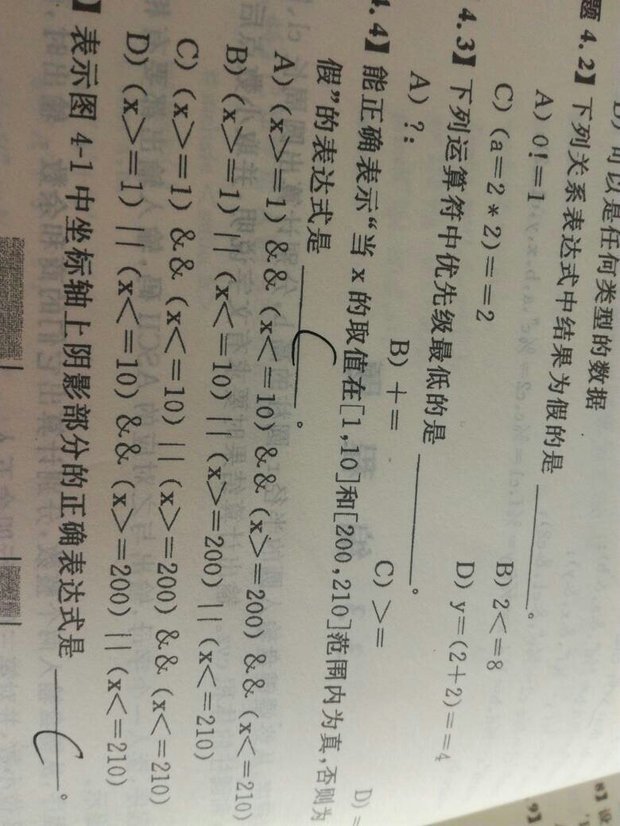 D) 可以是任何类型的数据
题 4.2】下列关系表达式中结果为假的是______。
A) 0!=1 B) 2<=8
C) (a=2*2)==2 D) y=(2+2)==4
4.3】下列运算符中优先级最低的是______。
A) ?: B) += C) >= D) =
4.4】能正确表示“当 x 的取值在[1,10]和[200,210]范围内为真,否则为
假”的表达式是______。
A) (x>=1) && (x<=10) && (x>=200) && (x<=210)
B) (x>=1) || (x<=10) || (x>=200) || (x<=210)
C) (x>=1) && (x<=10) || (x>=200) && (x<=210)
D) (x>=1) || (x<=10) && (x>=200) || (x<=210)
】表示图 4-1 中坐标轴上阴影部分的正确表达式是 C。
8】设
9】